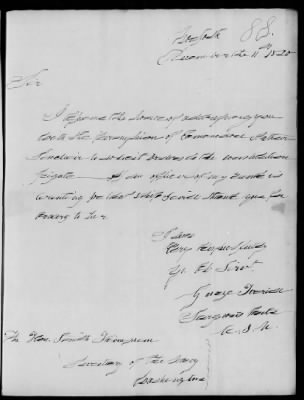 Norfolk 88.
December the 11th 1820
Sir
I assume the honor of addressing you
with the permission of Commodore Arthur
Sinclair to solicit orders to the constellation
frigate if an officer of my rank is
wanting for that ship I will thank you for
to her
I am
Very Respectfully
Yr. Ob. Servt.
George
Surgeons Mate
U. S. N.
The Hon. Smith Thompson
Secretary of the Navy
Washington